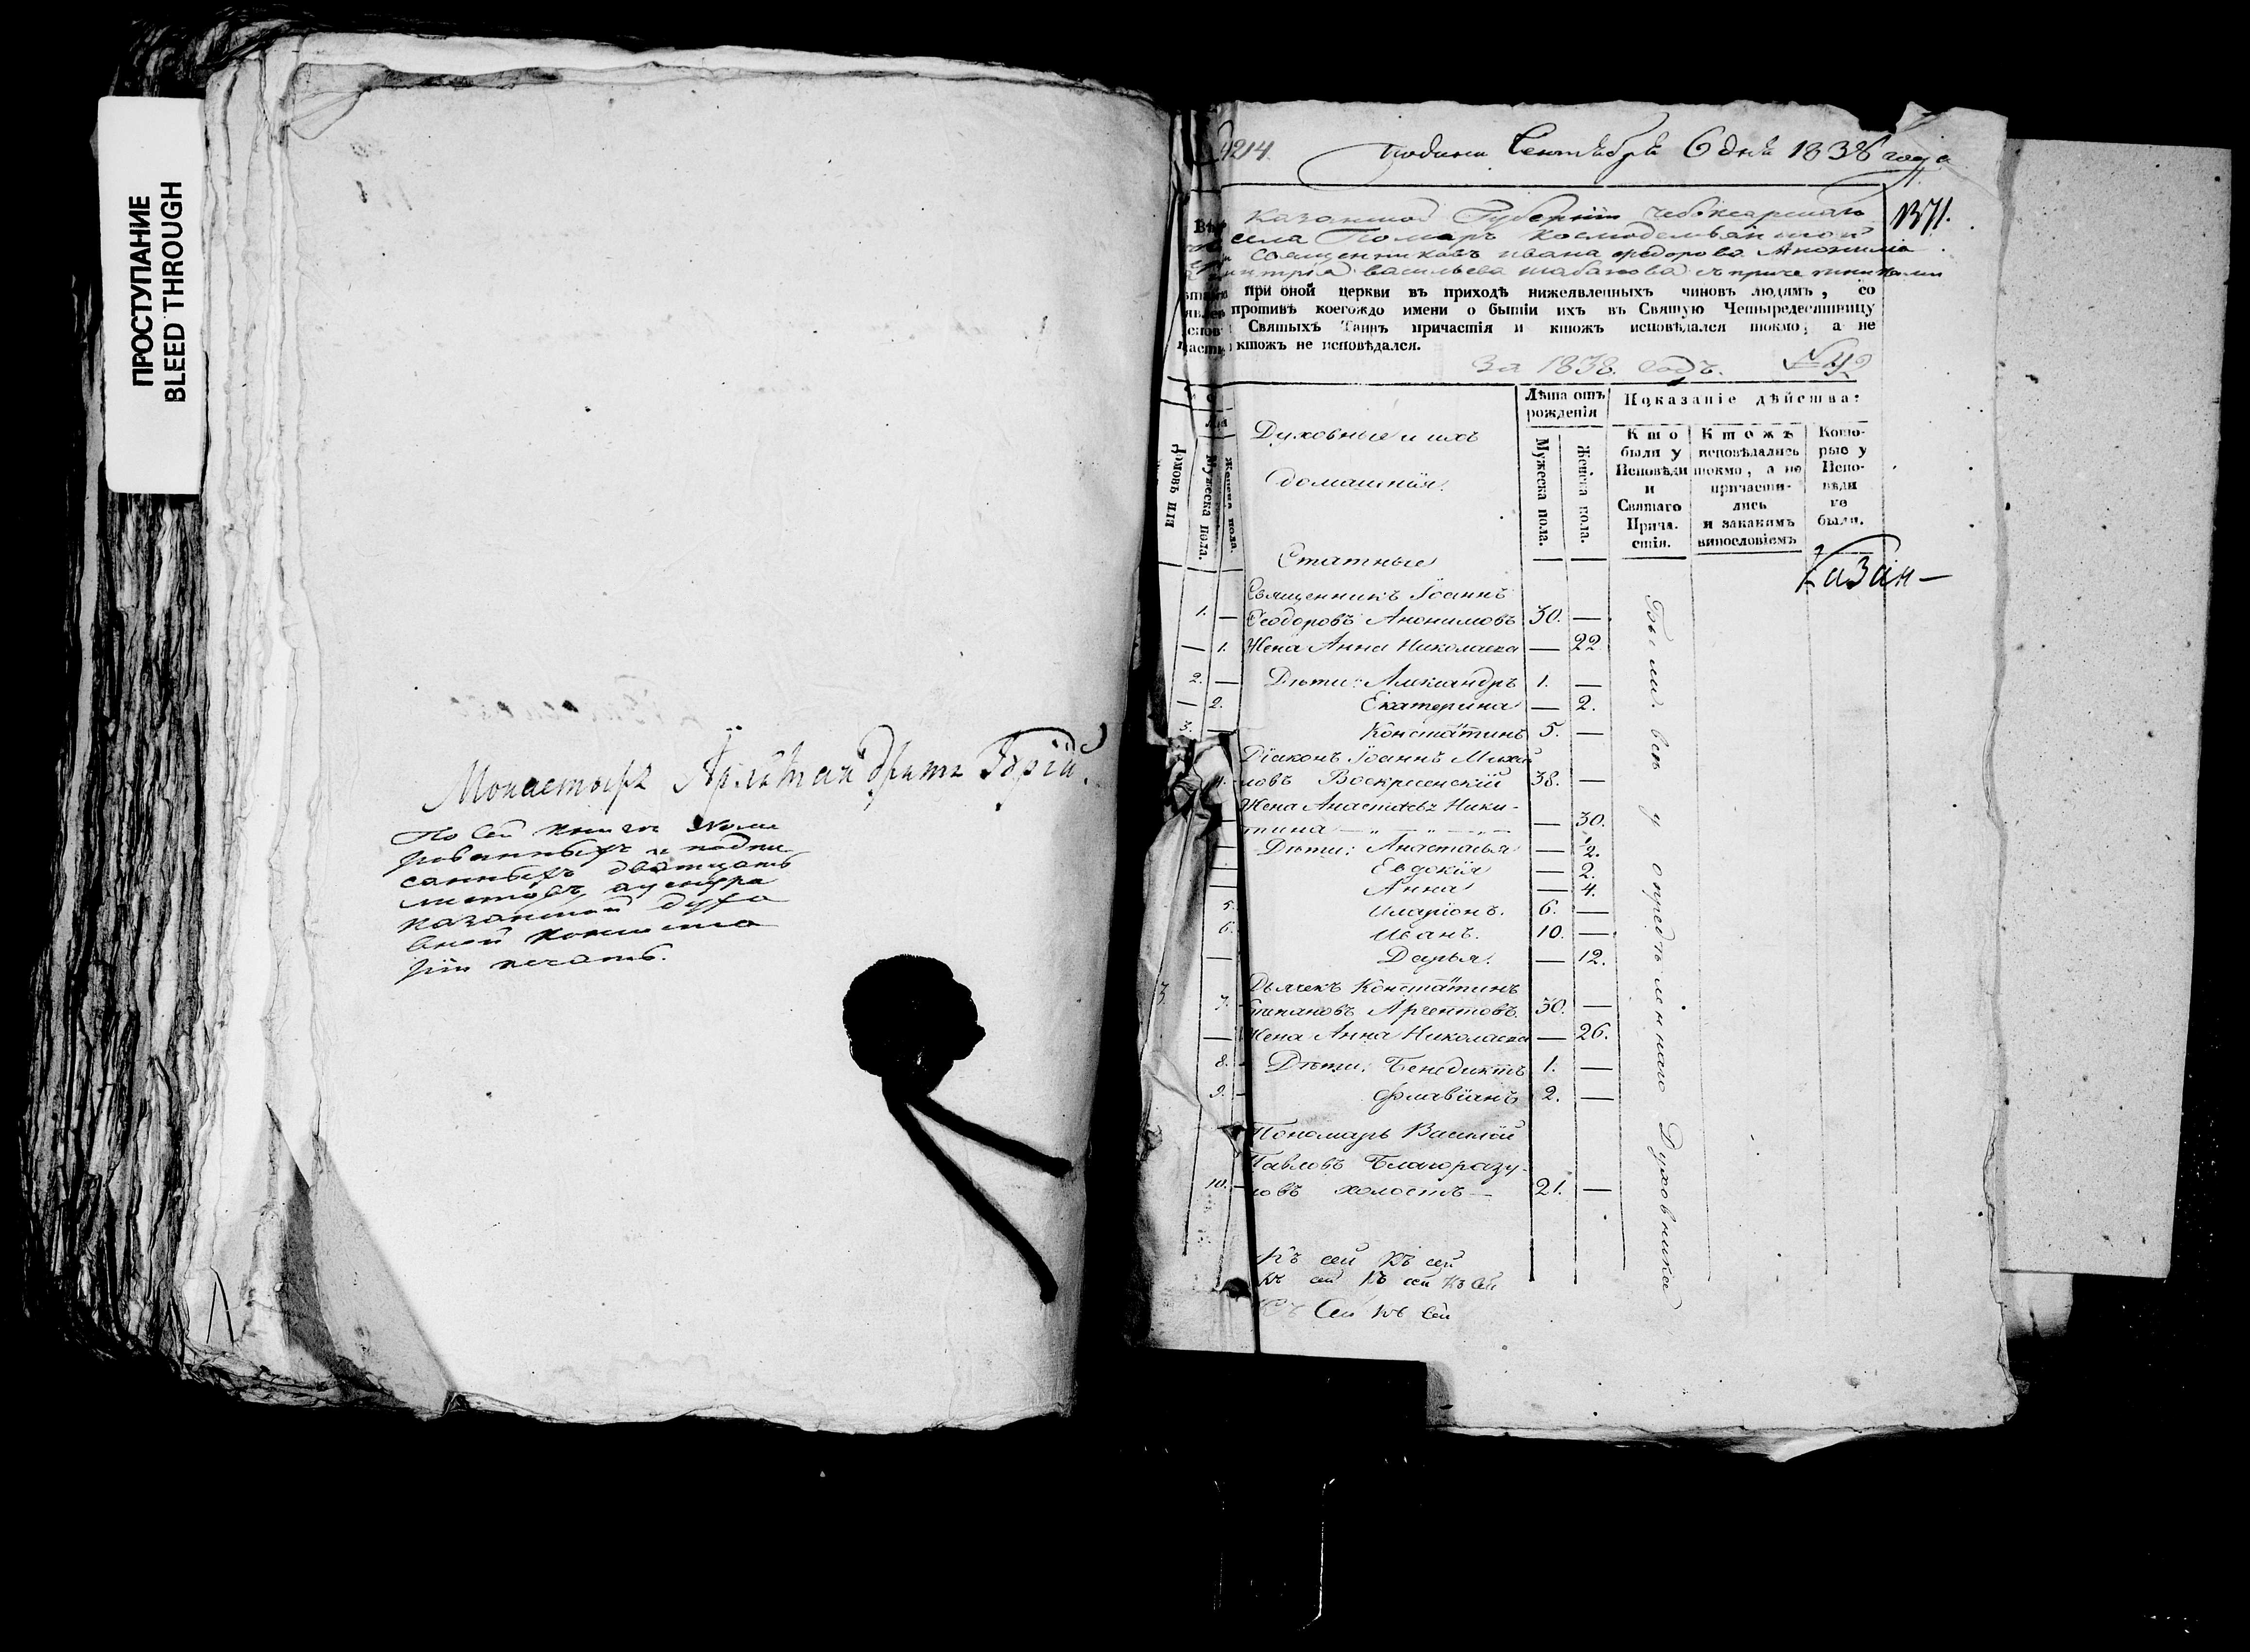 ПРОСТУПАНИЕ
BLEED THROUGH
Монастырь
По сей книге
санныхъ дватцать
листовъ
казанской духо
вной консисто
ріи печать.
9214
Сентября 6 дня 1838 года
1371.
Казанской Губерніи Чебоксарскаго
села
Священниковъ Ивана Федорова Анонимова
Васильева съ причетниками
при оной церкви въ приходѣ нижеявленныхъ чиновъ людямъ, со
противъ коегождо имени о бытіи ихъ въ Святую Четыредесятницу
Святыхъ Таинъ причастія и ктожъ исповѣдался токмо, а не
ктожъ не исповѣдался.
За 1838. годъ.
Домовъ или
Мужеска пола.
Женска пола.
Духовные и ихъ
домашнія.
Лѣта отъ
рожденія
Мужеска пола.
Женска пола.
Показаніе дѣйства:
Кто
были у
Исповѣди
и
Святаго
Прича-
стія.
Ктожъ
исповѣдались
токмо, а не
причасти-
лись
и закакимъ
винословіемъ
Кото-
рые у
Испо-
вѣди
не
были.
Казан-
Статные
Священникъ Іоаннъ
1. — Ѳеодоровъ Анонимовъ 30. —
— 1. Жена Анна Николаева — 22
2. — Дѣти: Александръ 1. —
— 2. Екатерина — 2.
3. — Констатинъ 5. —
Діаконъ Іоаннъ Михай
4. ловъ Воскресенскій 38. —
Жена Анастасья Ники-
— тина — 30.
— Дѣти: Анастасья — ½.
— Евдокія — 2.
— Анна — 4.
5. Иларіонъ. 6. —
6. Иванъ. 10. —
— Дарья. — 12.
3. Дьячекъ Констатинъ
7. Степановъ Аргентовъ. 30. —
— Жена Анна Николаева — 26.
8. Дѣти: Бенедиктъ 1. —
9. Флавіанъ 2. —
Пономарь Василій
Павловъ Благоразу-
10. мовъ холостъ — 21. —
Были всѣ у опредѣленнаго Духовника
Къ сей Къ сей
Къ сей Къ сей Къ Сей
Къ Сей Къ Сей